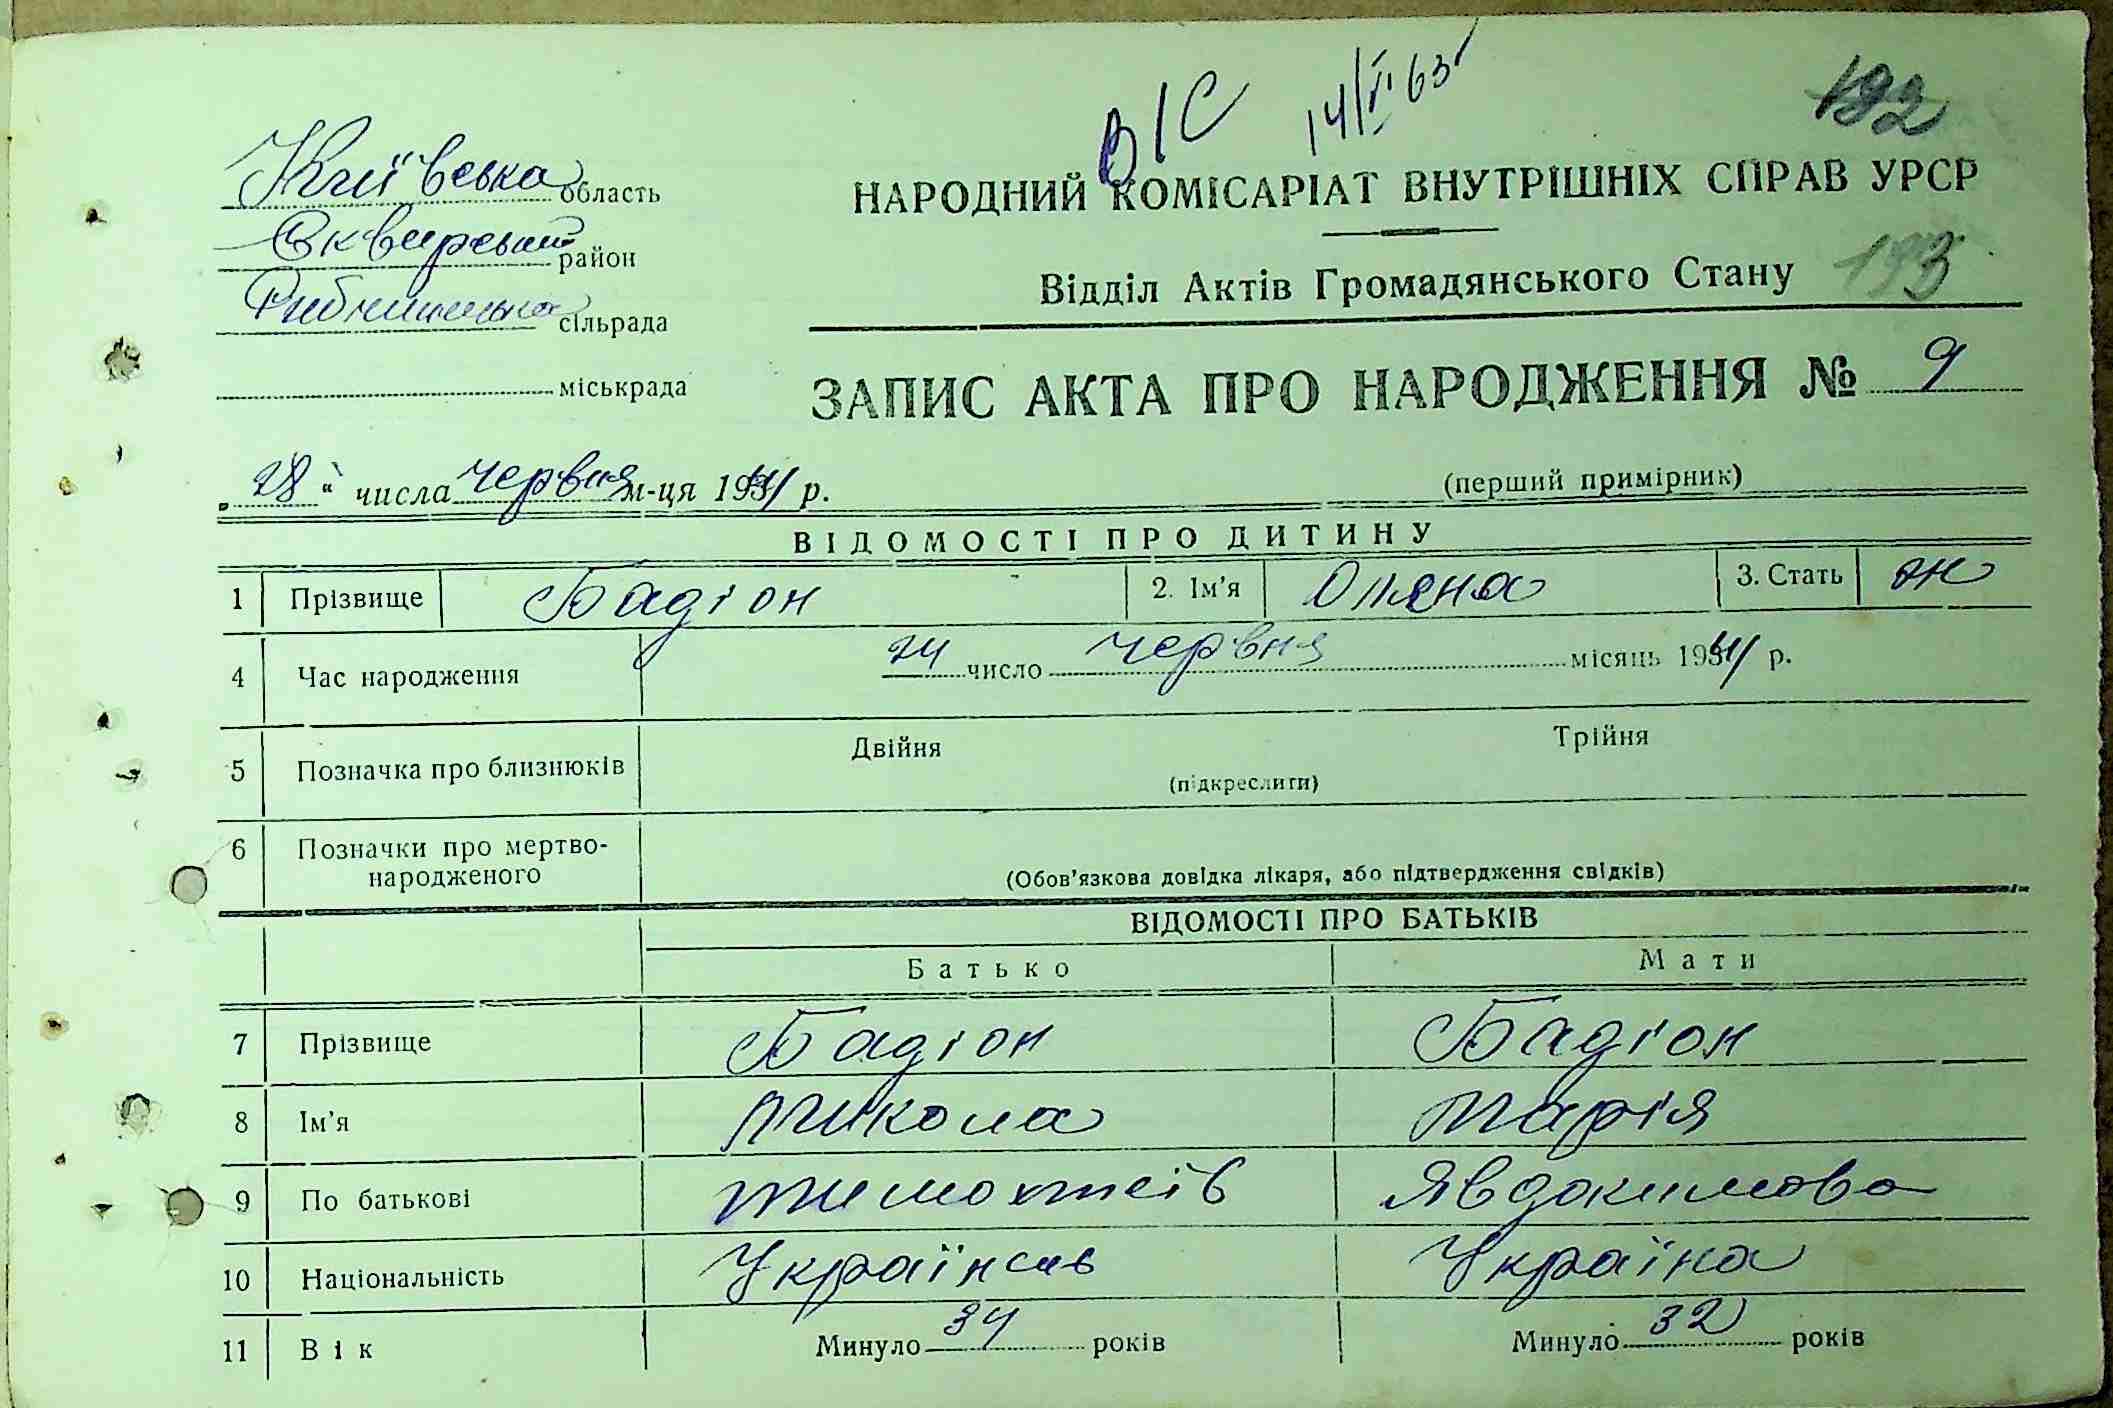 ВІС 14/І 63
192
Київська область
Сквирський район
сільрада
міськрада
НАРОДНИЙ КОМІСАРІАТ ВНУТРІШНІХ СПРАВ УРСР
Відділ Актів Громадянського Стану 193
ЗАПИС АКТА ПРО НАРОДЖЕННЯ № 9
„28“ числа червня м-ця 1941 р. (перший примірник)
ВІДОМОСТІ ПРО ДИТИНУ
1 Прізвище Бадіон 2. Ім'я Олена 3. Стать ж
4 Час народження 24 число червня місяць 1941 р.
5 Позначка про близнюків Двійня Трійня
(підкреслити)
6 Позначки про мертво-
народженого (Обов'язкова довідка лікаря, або підтвердження свідків)
ВІДОМОСТІ ПРО БАТЬКІВ
Батько Мати
7 Прізвище Бадіон Бадіон
8 Ім'я Микола Марія
9 По батькові Тимохтеів Явдокимова
10 Національність Україна
11 Вік Минуло 34 років Минуло 32 років